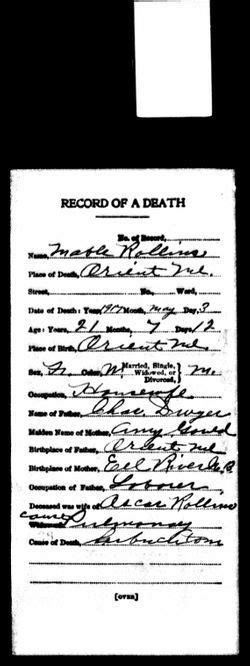 RECORD OF A DEATH
No. of Record,
Name, Mable Rollins
Place of Death, Orient Me.
Street, No., Ward,
Date of Death: Year, 1917 Month, May Day, 3
Age: Years, 21 Months, 7 Days, 12
Place of Birth, Orient Me.
Sex, Color, W. Married, Single, Widowed, or Divorced, } M.
Occupation, Housewife
Name of Father, Chas. Dwyer
Maiden Name of Mother, Amy Gould
Birthplace of Father, Orient Me
Birthplace of Mother, Eel River N.B
Occupation of Father, Laborer
Deceased was wife of Oscar Rollins
Pulmonary
Cause of Death,
[OVER]